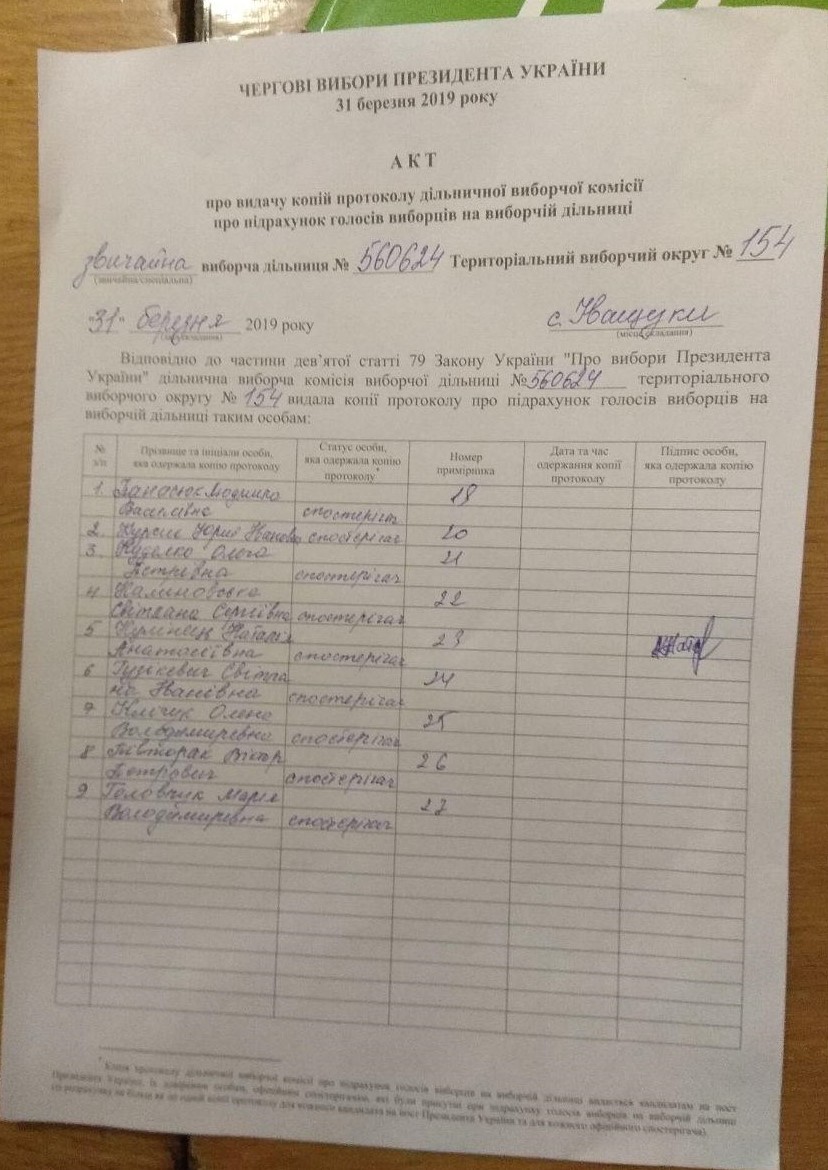 ЧЕРГОВІ ВИБОРИ ПРЕЗИДЕНТА УКРАЇНИ
31 березня 2019 року
АКТ
про видачу копій протоколу дільничної виборчої комісії
про підрахунок голосів виборців на виборчій дільниці
звичайна виборча дільниця № 560624 Територіальний виборчий округ № 154
(звичайна/спеціальна)
"31" березня 2019 року с. Іващуки
(місце складання)
Відповідно до частини дев’ятої статті 79 Закону України "Про вибори Президента
України" дільнична виборча комісія виборчої дільниці № 560624 територіального
виборчого округу № 154 видала копії протоколу про підрахунок голосів виборців на
виборчій дільниці таким особам:
№ з/п Прізвище та ініціали особи, яка одержала копію протоколу Статус особи, яка одержала копію протоколу* Номер примірника Дата та час одержання копії протоколу Підпис особи, яка одержала копію протоколу
1. Панасюк Людмила 19
Василівна спостерігач
2. Юрій Іванович спостерігач 20
3. Ольга 21
Петрівна спостерігач
4 Калиновська 22
Світлана Сергіївна спостерігач
5 Наталія 23
Анатоліївна спостерігач
6 Гуцкевич Світла 24
на Іванівна спостерігач
7 Олена 25
Володимирівна спостерігач
8 Півторак Віктор 26
Петрович спостерігач
9 Головчик Марія 27
Володимирівна спостерігач
* Копія протоколу дільничної виборчої комісії про підрахунок голосів виборців на виборчій дільниці видається кандидатам на пост
Президента України, їх довіреним особам, офіційним спостерігачам, які були присутні при підрахунку голосів виборців на виборчій дільниці
(з розрахунку не більш як по одній копії протоколу для кожного кандидата на пост Президента України та для кожного офіційного спостерігача).